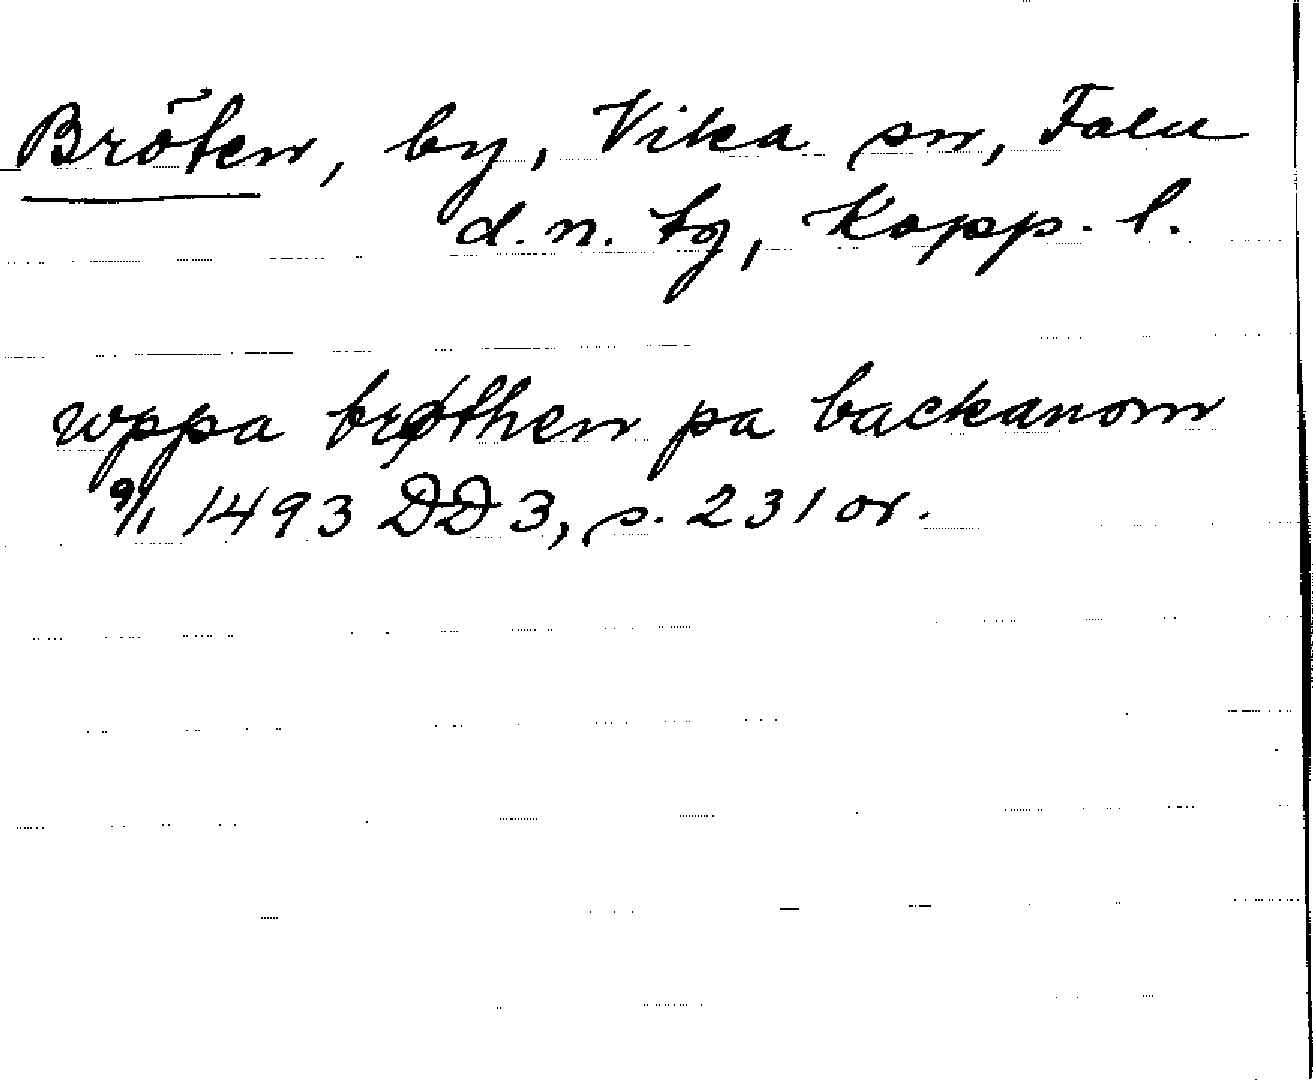 Bröten, by, Vika sn, Falu
d.n. tg, Kopp. l.
wppa brøthen pa backanom
9/1 1493 DD 3, s. 231 or.